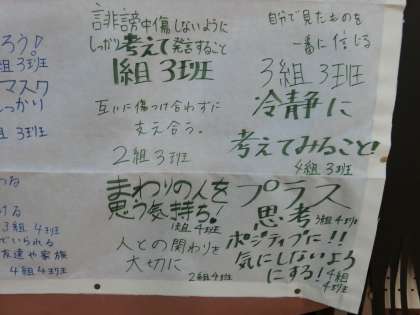 誹謗中傷しないように
しっかり考えて発言すること
1組 3班
互いに傷つけ合わずに
支え合う。
2組 3班
自分で見たものを
一番に信じる
3組 3班
冷静に
考えてみること!
4組 3班
ろう♪
組 3班
マスク
しっかり
組 3班
まわりの人を
思う気持ち!
1組 4班
人との関わりを
大切に
2組 4班
プラス
思考
3組 4班
ポジティブに!!
気にしないよう
にする!
4組
4班
ける
3組 4班
でいられる
友達や家族
4組 4班